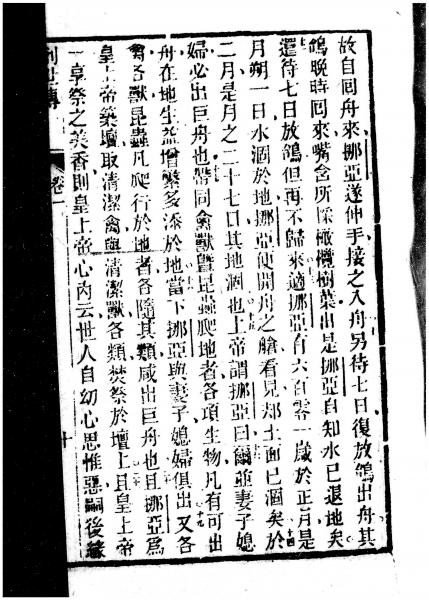 故自囘舟來挪亞遂伸手接之入舟另待七日復放鴿出舟其
鴿晚時囘來嘴含所採橄欖樹葉出是挪亞自知水已退地矣
還待七日放鴿但再不歸來適挪亞有六百零一歲於正月是
月朔一日水涸於地挪亞使開舟之艙看見却土面已涸矣於
二月是月之二十七日其地涸也上帝謂挪亞曰爾並妻子媳
婦必出巨舟也帶同禽獸曁昆蟲爬地者各項生物凡有可出
舟在地生益增繁多添於地當下挪亞與妻子媳婦俱出又各
禽各獸昆蟲凡爬行於地者各隨其類咸出巨舟也且挪亞爲
皇上帝築壇取清潔禽與清潔獸各類焚祭於壇上且皇上帝
一享祭之美香則皇上帝心內云世人自幼心思惟惡嗣後緣
卷一
十